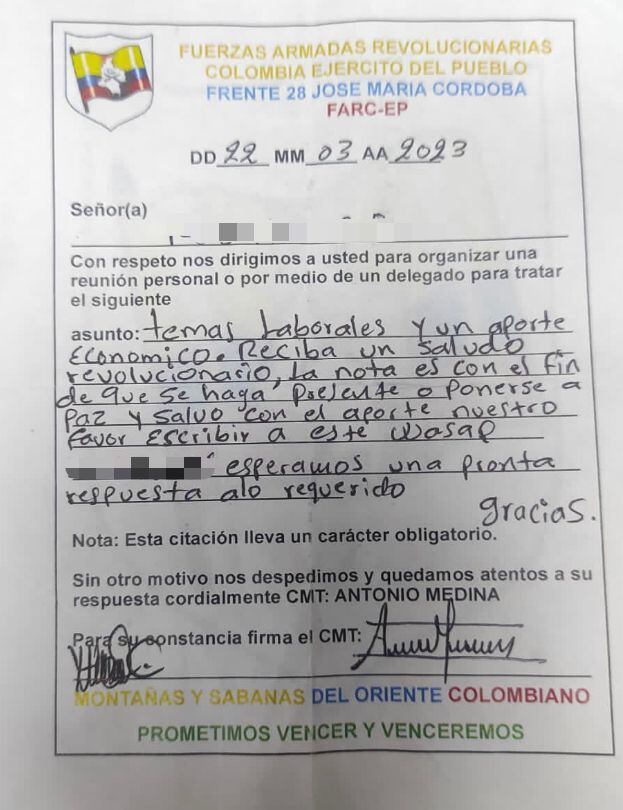 FUERZAS ARMADAS REVOLUCIONARIAS
COLOMBIA EJERCITO DEL PUEBLO
FRENTE 28 JOSE MARIA CORDOBA
FARC-EP
DD 22 MM 03 AA 2023
Señor(a)
Con respeto nos dirigimos a usted para organizar una
reunión personal o por medio de un delegado para tratar
el siguiente
asunto: temas Laborales y un aporte
Economico. Reciba un saludo
revolucionario, La nota es con el fin
de que se haga presente o ponerse a
Paz y salvo con el aporte nuestro
favor Escribir a este Wasap
esperamos una pronta
respuesta alo requerido
gracias.
Nota: Esta citación lleva un carácter obligatorio.
Sin otro motivo nos despedimos y quedamos atentos a su
respuesta cordialmente CMT: ANTONIO MEDINA
Para su constancia firma el CMT:
MONTAÑAS Y SABANAS DEL ORIENTE COLOMBIANO
PROMETIMOS VENCER Y VENCEREMOS